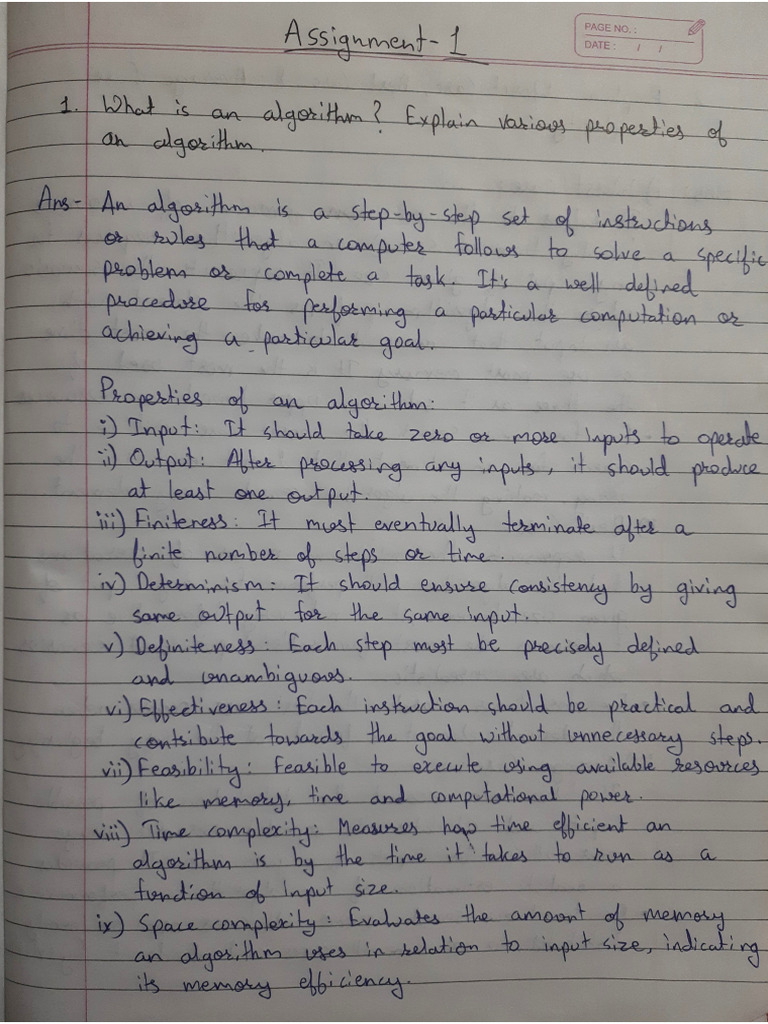 Assignment-1
PAGE NO.:
DATE: / /
1. What is an algorithm? Explain various properties of
an algorithm.
Ans- An algorithm is a step-by-step set of instructions
or rules that a computer follows to solve a specific
problem or complete a task. It's a well defined
procedure for performing a particular computation or
achieving a particular goal.
Properties of an algorithm:
i) Input: It should take zero or more inputs to operate
ii) Output: After processing any inputs, it should produce
at least one output.
iii) Finiteness: It must eventually terminate after a
finite number of steps or time.
iv) Determinism: It should ensure consistency by giving
same output for the same input.
v) Definiteness: Each step must be precisely defined
and unambiguous.
vi) Effectiveness: Each instruction should be practical and
contribute towards the goal without unnecessary steps.
vii) Feasibility: Feasible to execute using available resources
like memory, time and computational power.
viii) Time complexity: Measures how time efficient an
algorithm is by the time it takes to run as a
function of Input size.
ix) Space complexity: Evaluates the amount of memory
an algorithm uses in relation to input size, indicating
its memory efficiency.